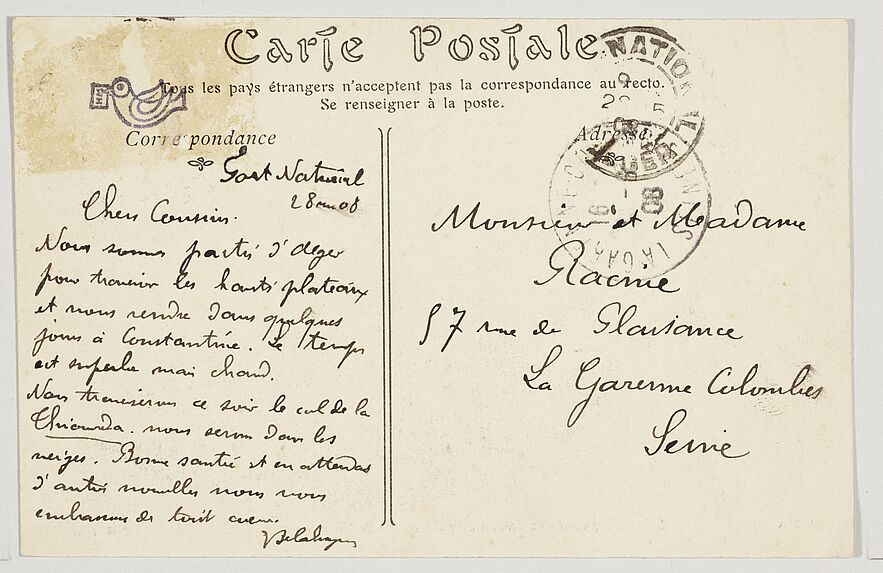 Carte Postale
Tous les pays étrangers n'acceptent pas la correspondance au recto.
Se renseigner à la poste.
Correspondance
Adresse
Fort National
28 08
Chers Cousins.
Nous sommes partis d'Alger
pour traverser les hauts plateaux
et nous rendre dans quelques
jours à Constantine. Le temps
est superbe mais chaud.
Nous traverserons ce soir le col de la
Thirourda. nous serons dans les
neiges. Bonne santé et en attendant
d'autres nouvelles nous vous
embrassons de tout coeur.
Monsieur et Madame
Racine
57 rue de Plaisance
La Garenne Colombes
Seine
NATIONAL
ALGER
LA GARENNE-COLOMBES
08